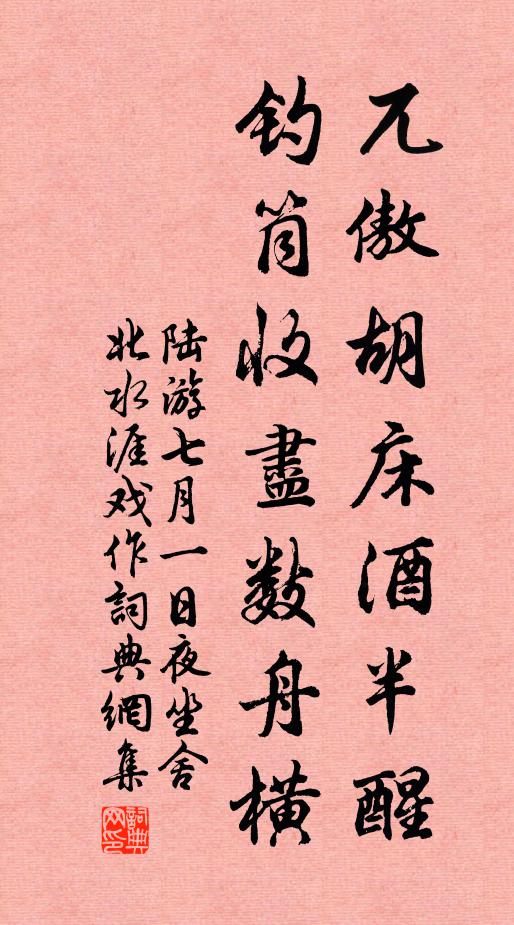 兀傲胡床酒半醒
钓筒收盡数舟横
陆游七月一日夜坐舍
北水涯戏作詞典網集
詞典
网印